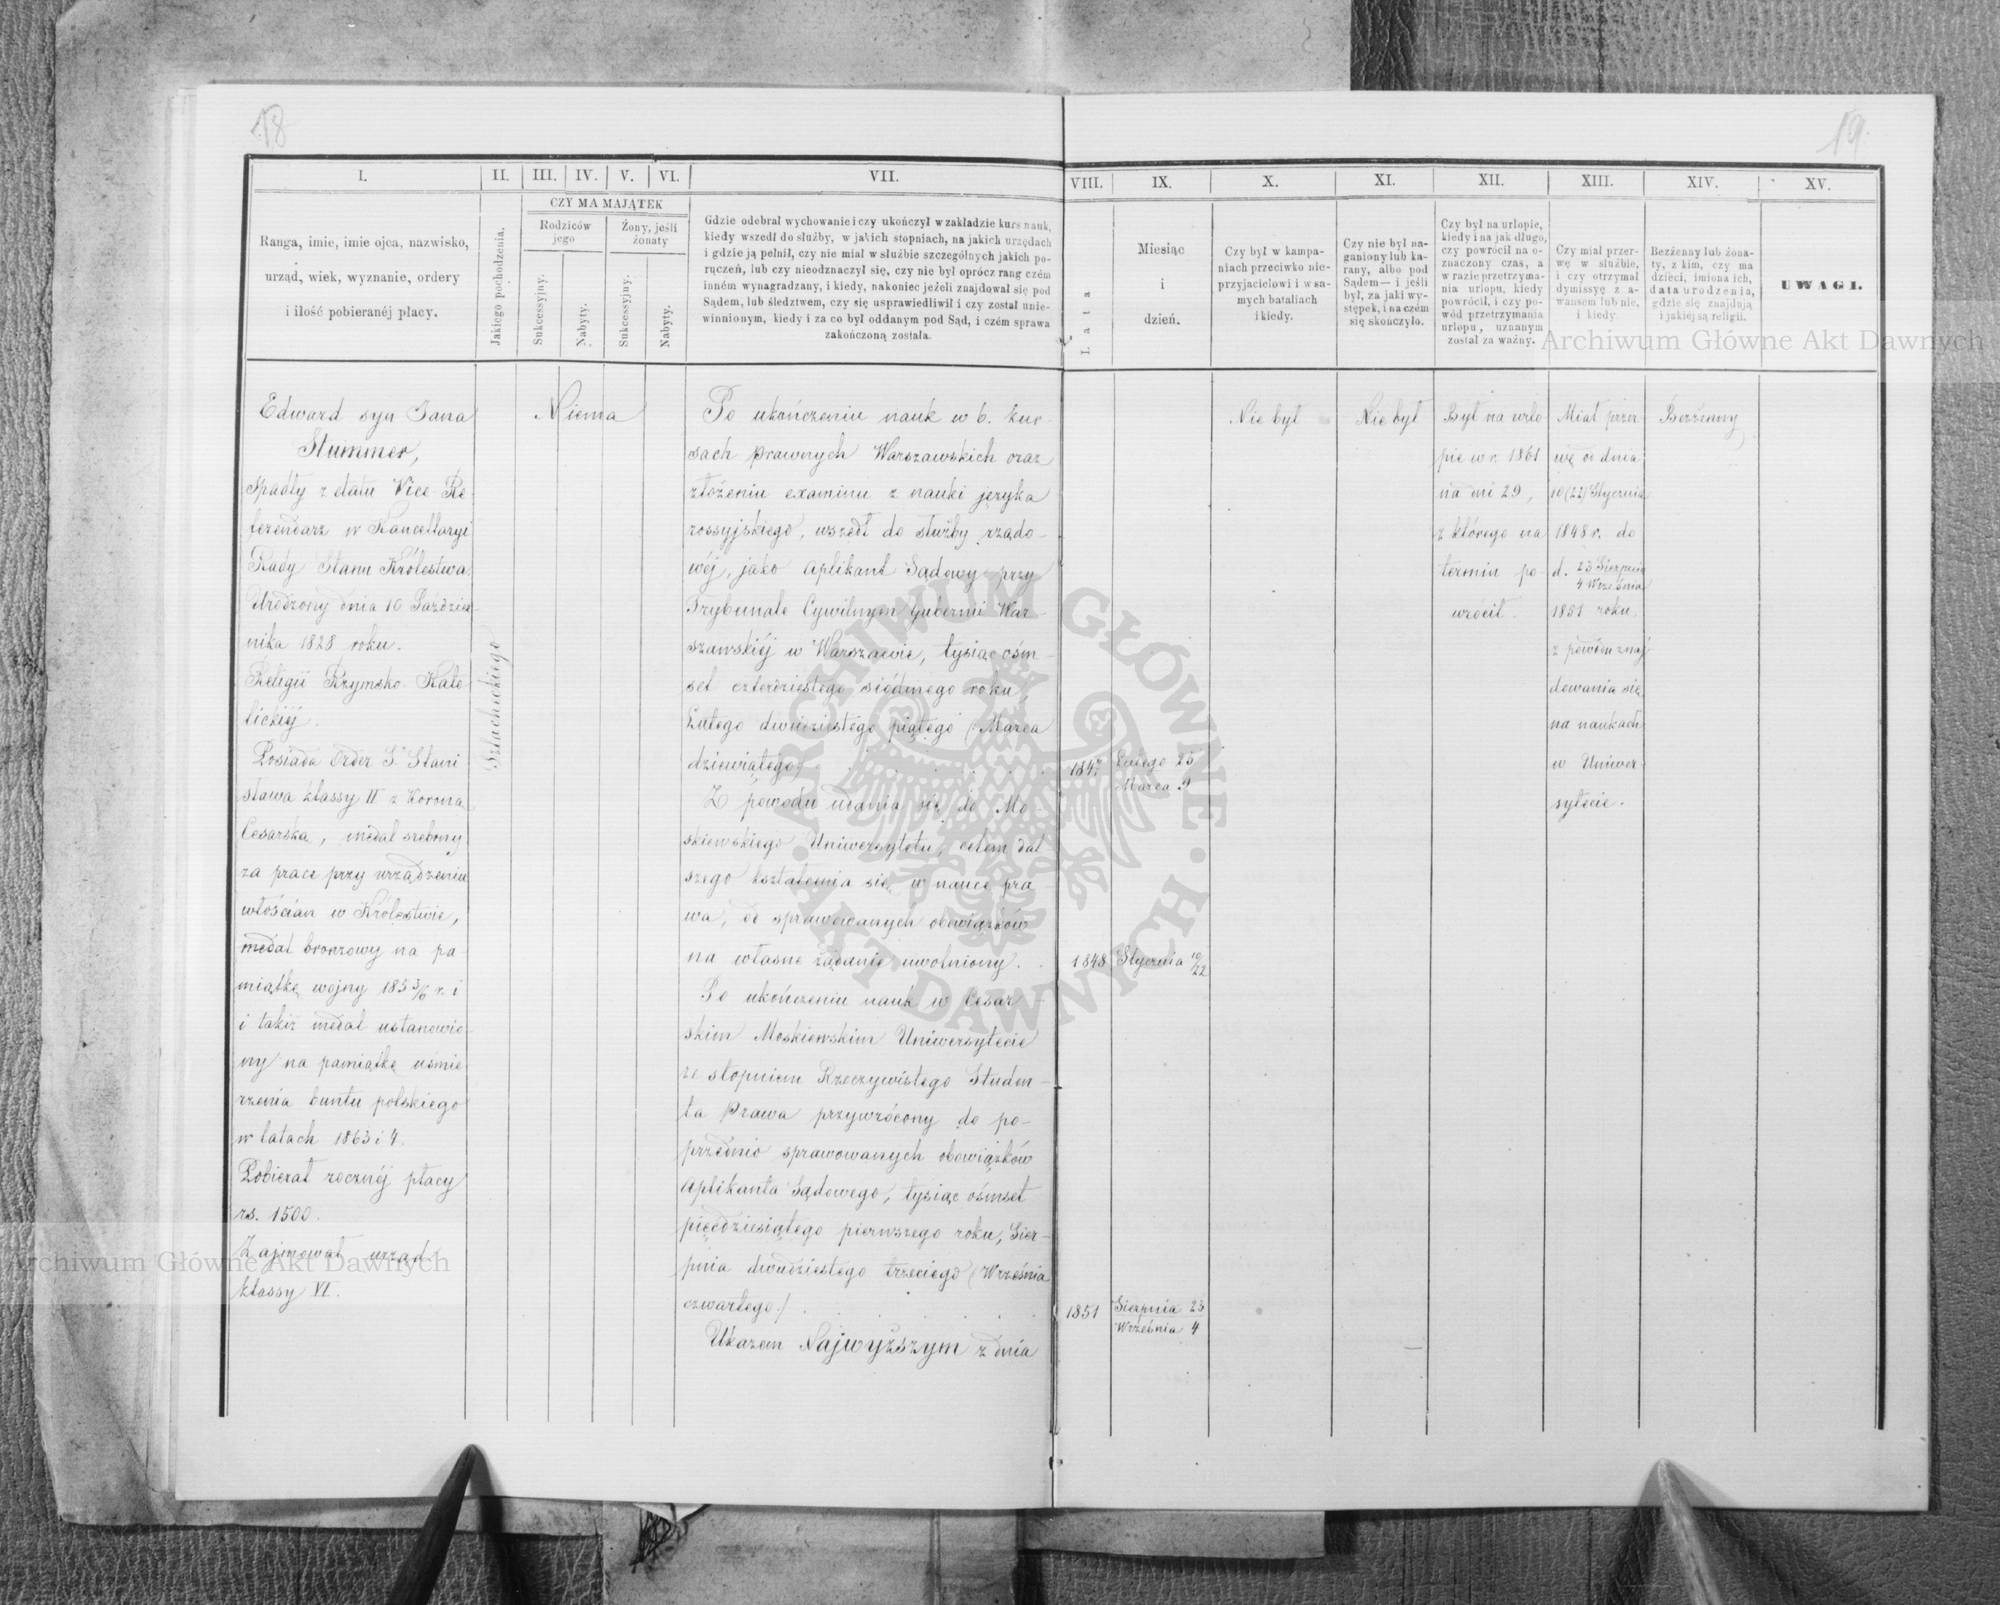 18
19.
I.
II.
III.
IV.
V.
VI.
VII.
VIII.
IX.
X.
XI.
XII.
XIII.
XIV.
XV.
Ranga, imie, imie ojca, nazwisko,
urząd, wiek, wyznanie, ordery
i ilość pobieranéj płacy.
Jakiego pochodzenia.
CZY MA MAJĄTEK
Rodziców
jego
Żony, jeśli
żonaty
Sukcessyjny.
Nabyty.
Sukcessyjny.
Nabyty.
Gdzie odebrał wychowanie i czy ukończył w zakładzie kurs nauk,
kiedy wszedł do służby, w jakich stopniach, na jakich urzędach
i gdzie ją pełnił, czy nie miał w służbie szczególnych jakich po-
ruczeń, lub czy nieodznaczył się, czy nie był oprócz rang czém
inném wynagradzany, i kiedy, nakoniec jeżeli znajdował się pod
Sądem, lub śledztwem, czy się usprawiedliwił i czy został unie-
winnionym, kiedy i za co był oddanym pod Sąd, i czém sprawa
zakończoną została.
Lata
Miesiąc
i
dzień.
Czy był w kampa-
niach przeciwko nie-
przyjacielowi i w sa-
mych bataliach
i kiedy.
Czy nie był na-
ganiony lub ka-
rany, albo pod
Sądem — i jeśli
był, za jaki wy-
stępek, i na czém
się skończyło.
Czy był na urlopie,
kiedy i na jak długo,
czy powrócił na o-
znaczony czas, a
w razie przetrzyma-
nia urlopu, kiedy
powrócił, i czy po-
wód przetrzymania
urlopu, uznanym
został za ważny.
Czy miał przer-
wę w służbie,
i czy otrzymał
dymissyę z a-
wansem lub nie,
i kiedy.
Bezżenny lub żona-
ty, z kim, czy ma
dzieci, imiona ich,
data urodzenia,
gdzie się znajdują
i jakiéj są religii.
UWAGI.
Edward syn Jana
Stummer,
Spadły z etatu Vice Re
ferendarz w Kancellaryi
Rady Stanu Królestwa.
Urodzony dnia 10 Paździer
nika 1828 roku.
Religii Rzymsko-Kato
lickiéj.
Posiada Order Sº Stani
sława klassy II z Koroną
Cesarską, medal srebrny
za prace przy urządzeniu
włościan w Królestwie,
medal bronzowy na pa-
miątkę wojny 185 3/6 r. i
i takiż medal ustanowio
ny na pamiątkę uśmie
rzenia buntu polskiego
w latach 1863 i 4.
Pobierał rocznéj płacy
rs. 1500.
Zajmował urząd
klassy VI.
Szlacheckiego
Niema
Po ukończeniu nauk w b. kur-
sach prawnych Warszawskich oraz
złożeniu examinu z nauki języka
rossyjskiego, wszedł do służby rządo-
wéj, jako Aplikant Sądowy przy
Trybunale Cywilnym Gubernii War-
szawskiéj w Warszawie, tysiąc ośm-
set czterdziestego siódmego roku,
Lutego dwudziestego piątego / Marca
dziewiątego/
Z powodu udania się do Mo-
skiewskiego Uniwersytetu, celem dal
szego kształcenia się w nauce pra
wa, od sprawowanych obowiązków
na własne żądanie uwolniony.
Po ukończeniu nauk w Cesar-
skim Moskiewskim Uniwersytecie
ze stopniem Rzeczywistego Studen-
ta Prawa przywrócony do po-
przednio sprawowanych obowiązków
Aplikanta Sądowego, tysiąc ośmset
pięćdziesiątego pierwszego roku, Sier-
pnia dwudziestego trzeciego / Września
czwartego/
Ukazem Najwyższym z dnia
1847
Lutego 25
Marca 9
1848
Stycznia 10/22
1851
Sierpnia 23
Września 4
Nie był
Nie był
Był na urlo
pie w r. 1861
na dni 29,
z którego na
termin po-
wrócił.
Miał przer
wę od dnia
10 (22) Stycznia
1848 r. do
d. 23 Sierpnia
4 Września
1851 roku
z powodu znaj
dowania się
na naukach
w Uniwer-
sytecie.
Bezżenny
Archiwum Główne Akt Dawnych
Archiwum Główne Akt Dawnych
ARCHIWUM GŁÓWNE AKT DAWNYCH